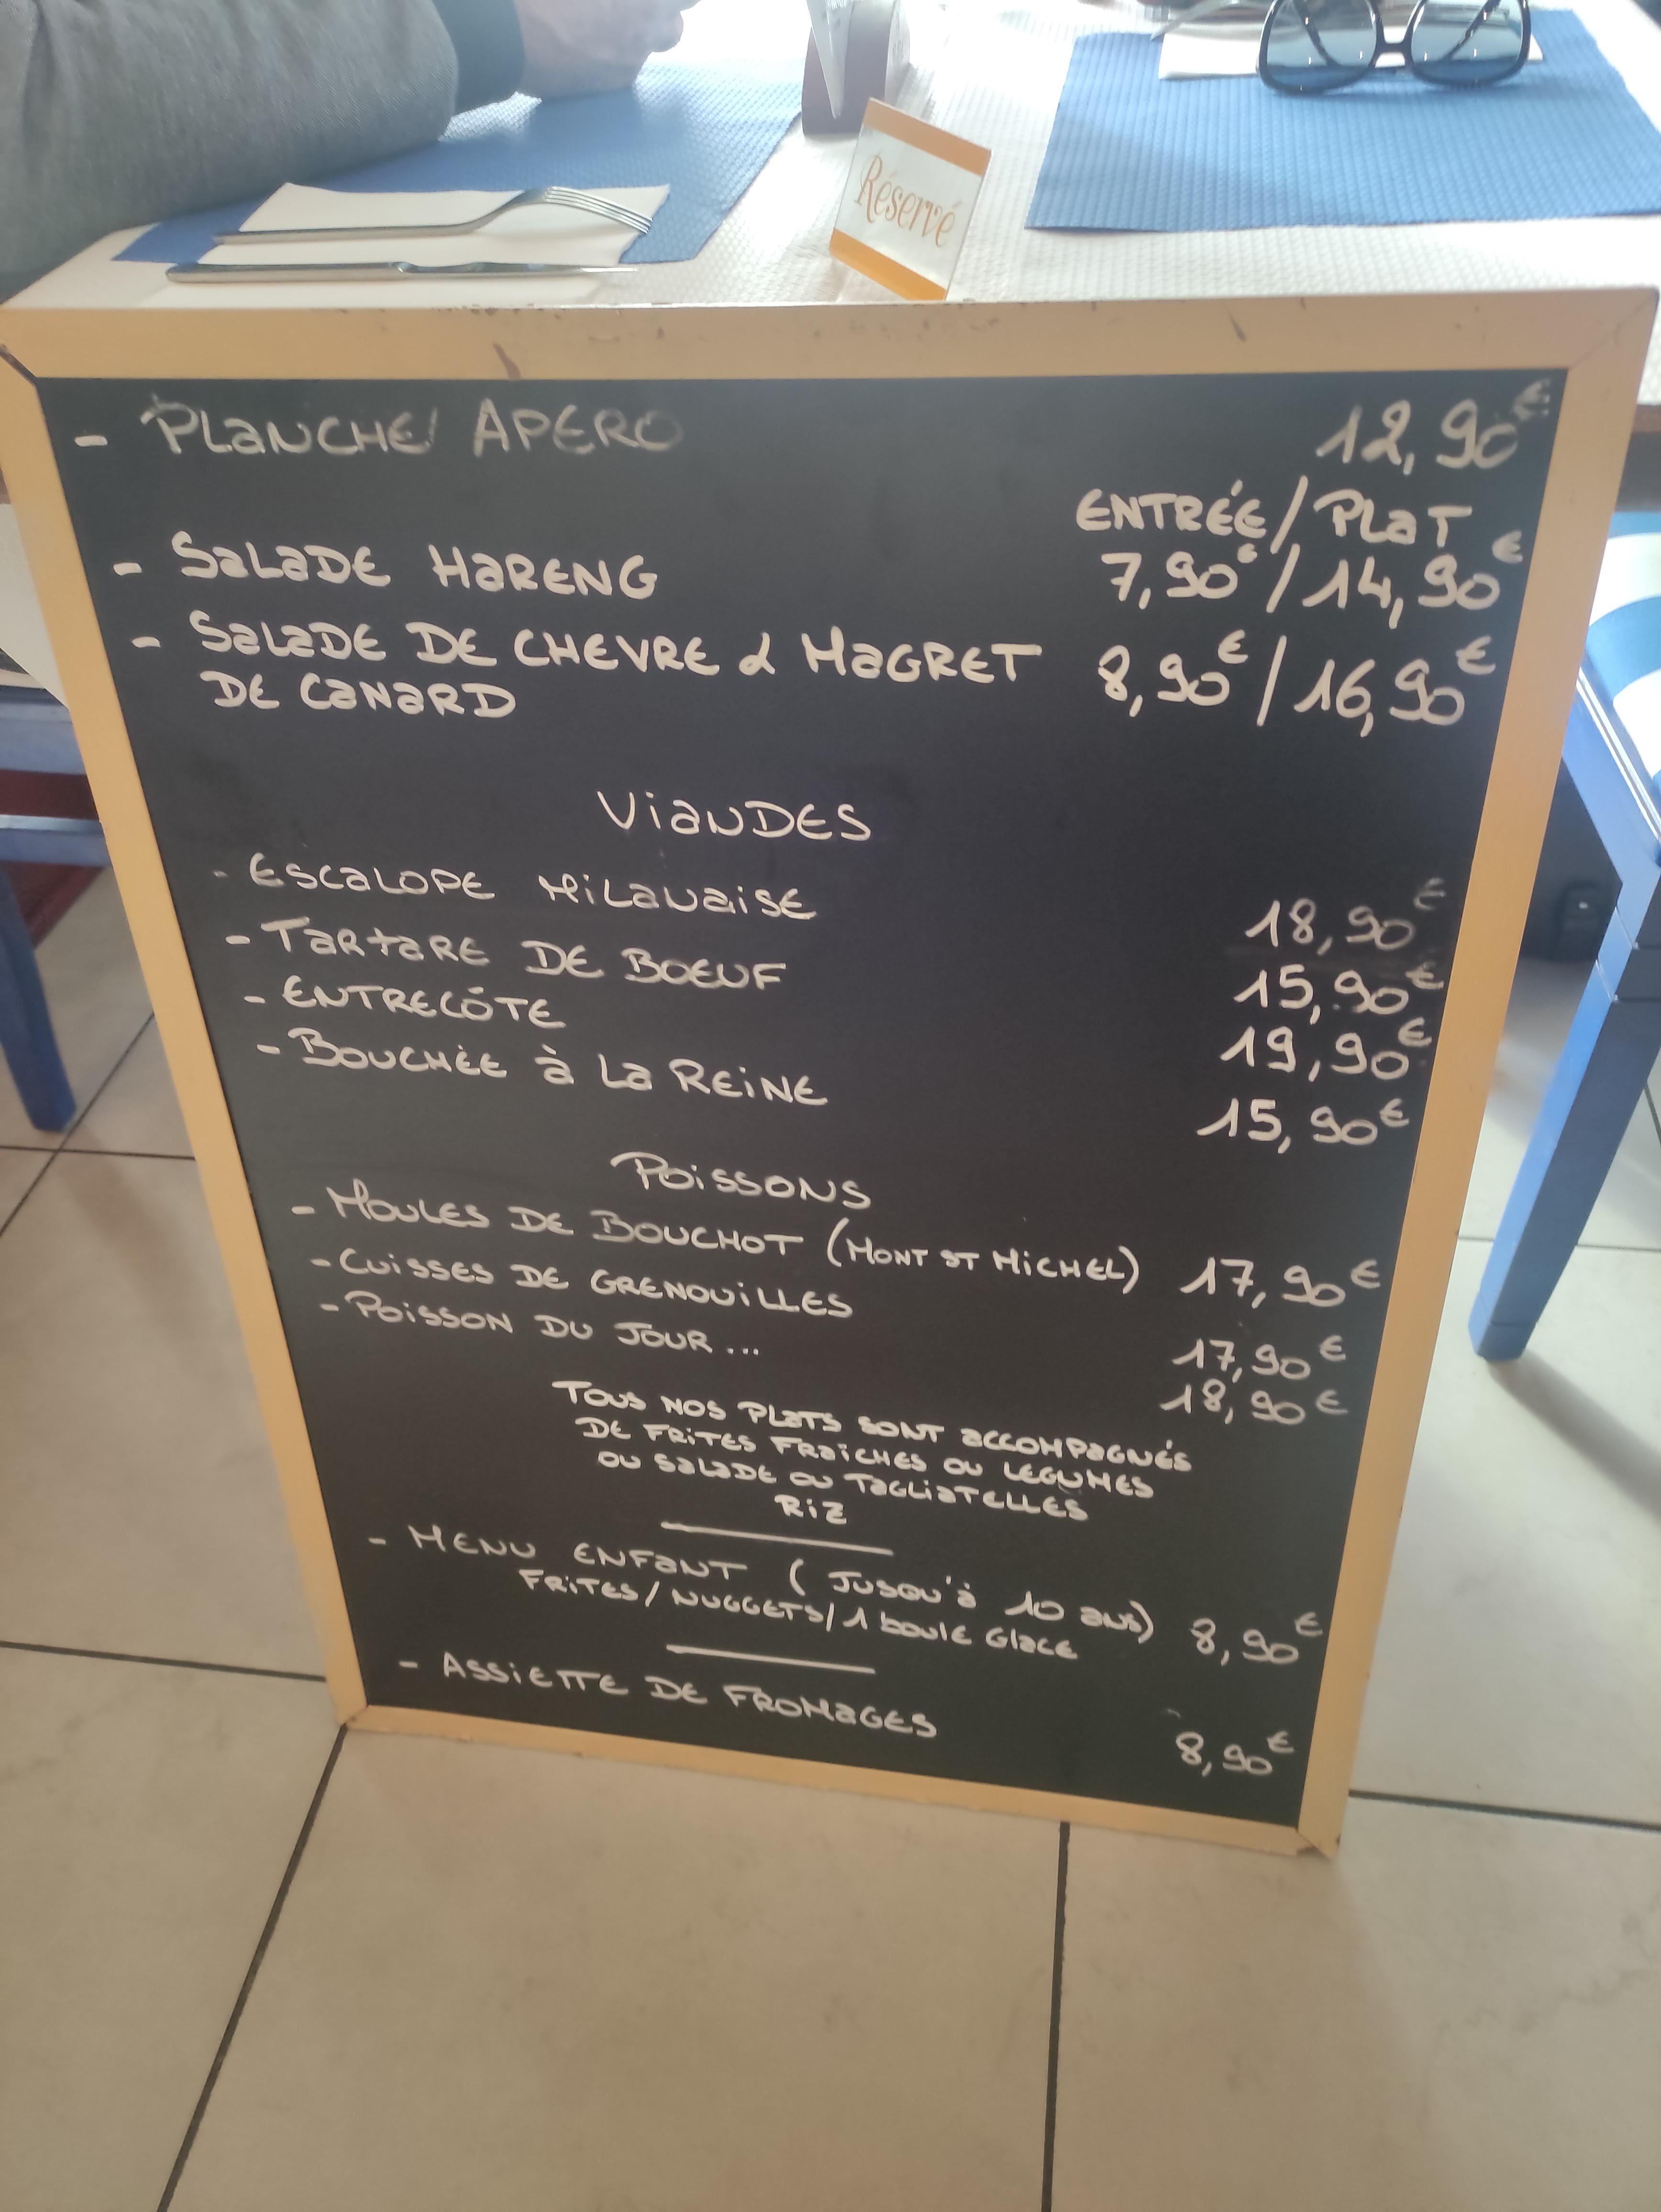 Réservé
- PLANCHE APERO 12,90€
ENTRÉE / PLAT
- SALADE HARENG 7,90€ / 14,90€
- SALADE DE CHEVRE & MAGRET 8,90€ / 16,90€
DE CANARD
VIANDES
- ESCALOPE MILANAISE 18,90€
- TARTARE DE BOEUF 15,90€
- ENTRECÔTE 19,90€
- BOUCHÉE À LA REINE 15,90€
POISSONS
- MOULES DE BOUCHOT (MONT ST MICHEL) 17,90€
- CUISSES DE GRENOUILLES 17,90€
- POISSON DU JOUR ... 18,90€
TOUS NOS PLATS SONT ACCOMPAGNÉS
DE FRITES FRAÎCHES OU LEGUMES
OU SALADE OU TAGLIATELLES
RIZ
- MENU ENFANT (JUSQU'À 10 ANS) 8,90€
FRITES / NUGGETS / 1 boule Glace
- ASSIETTE DE FROMAGES 8,90€